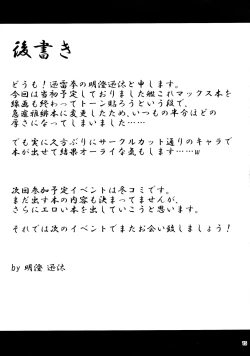 後書き
どうも！迅雷拳の明澄迅沫と申します。
今回は当初予定しておりました艦これマックス本を
線画も終わってトーン貼ろうという段で、
急遽推緋本に変更したため、いつもの半分ほどの
厚さになってしまいました……
でも実に久方ぶりにサークルカット通りのキャラで
本が出せて結果オーライな気もします……w
次回参加予定イベントは冬コミです。
まだ出す本の内容も決まってませんが、
さらにエロい本を出していこうと思います。
それでは次のイベントでまたお会い致しましょう！
by 明澄 迅沫